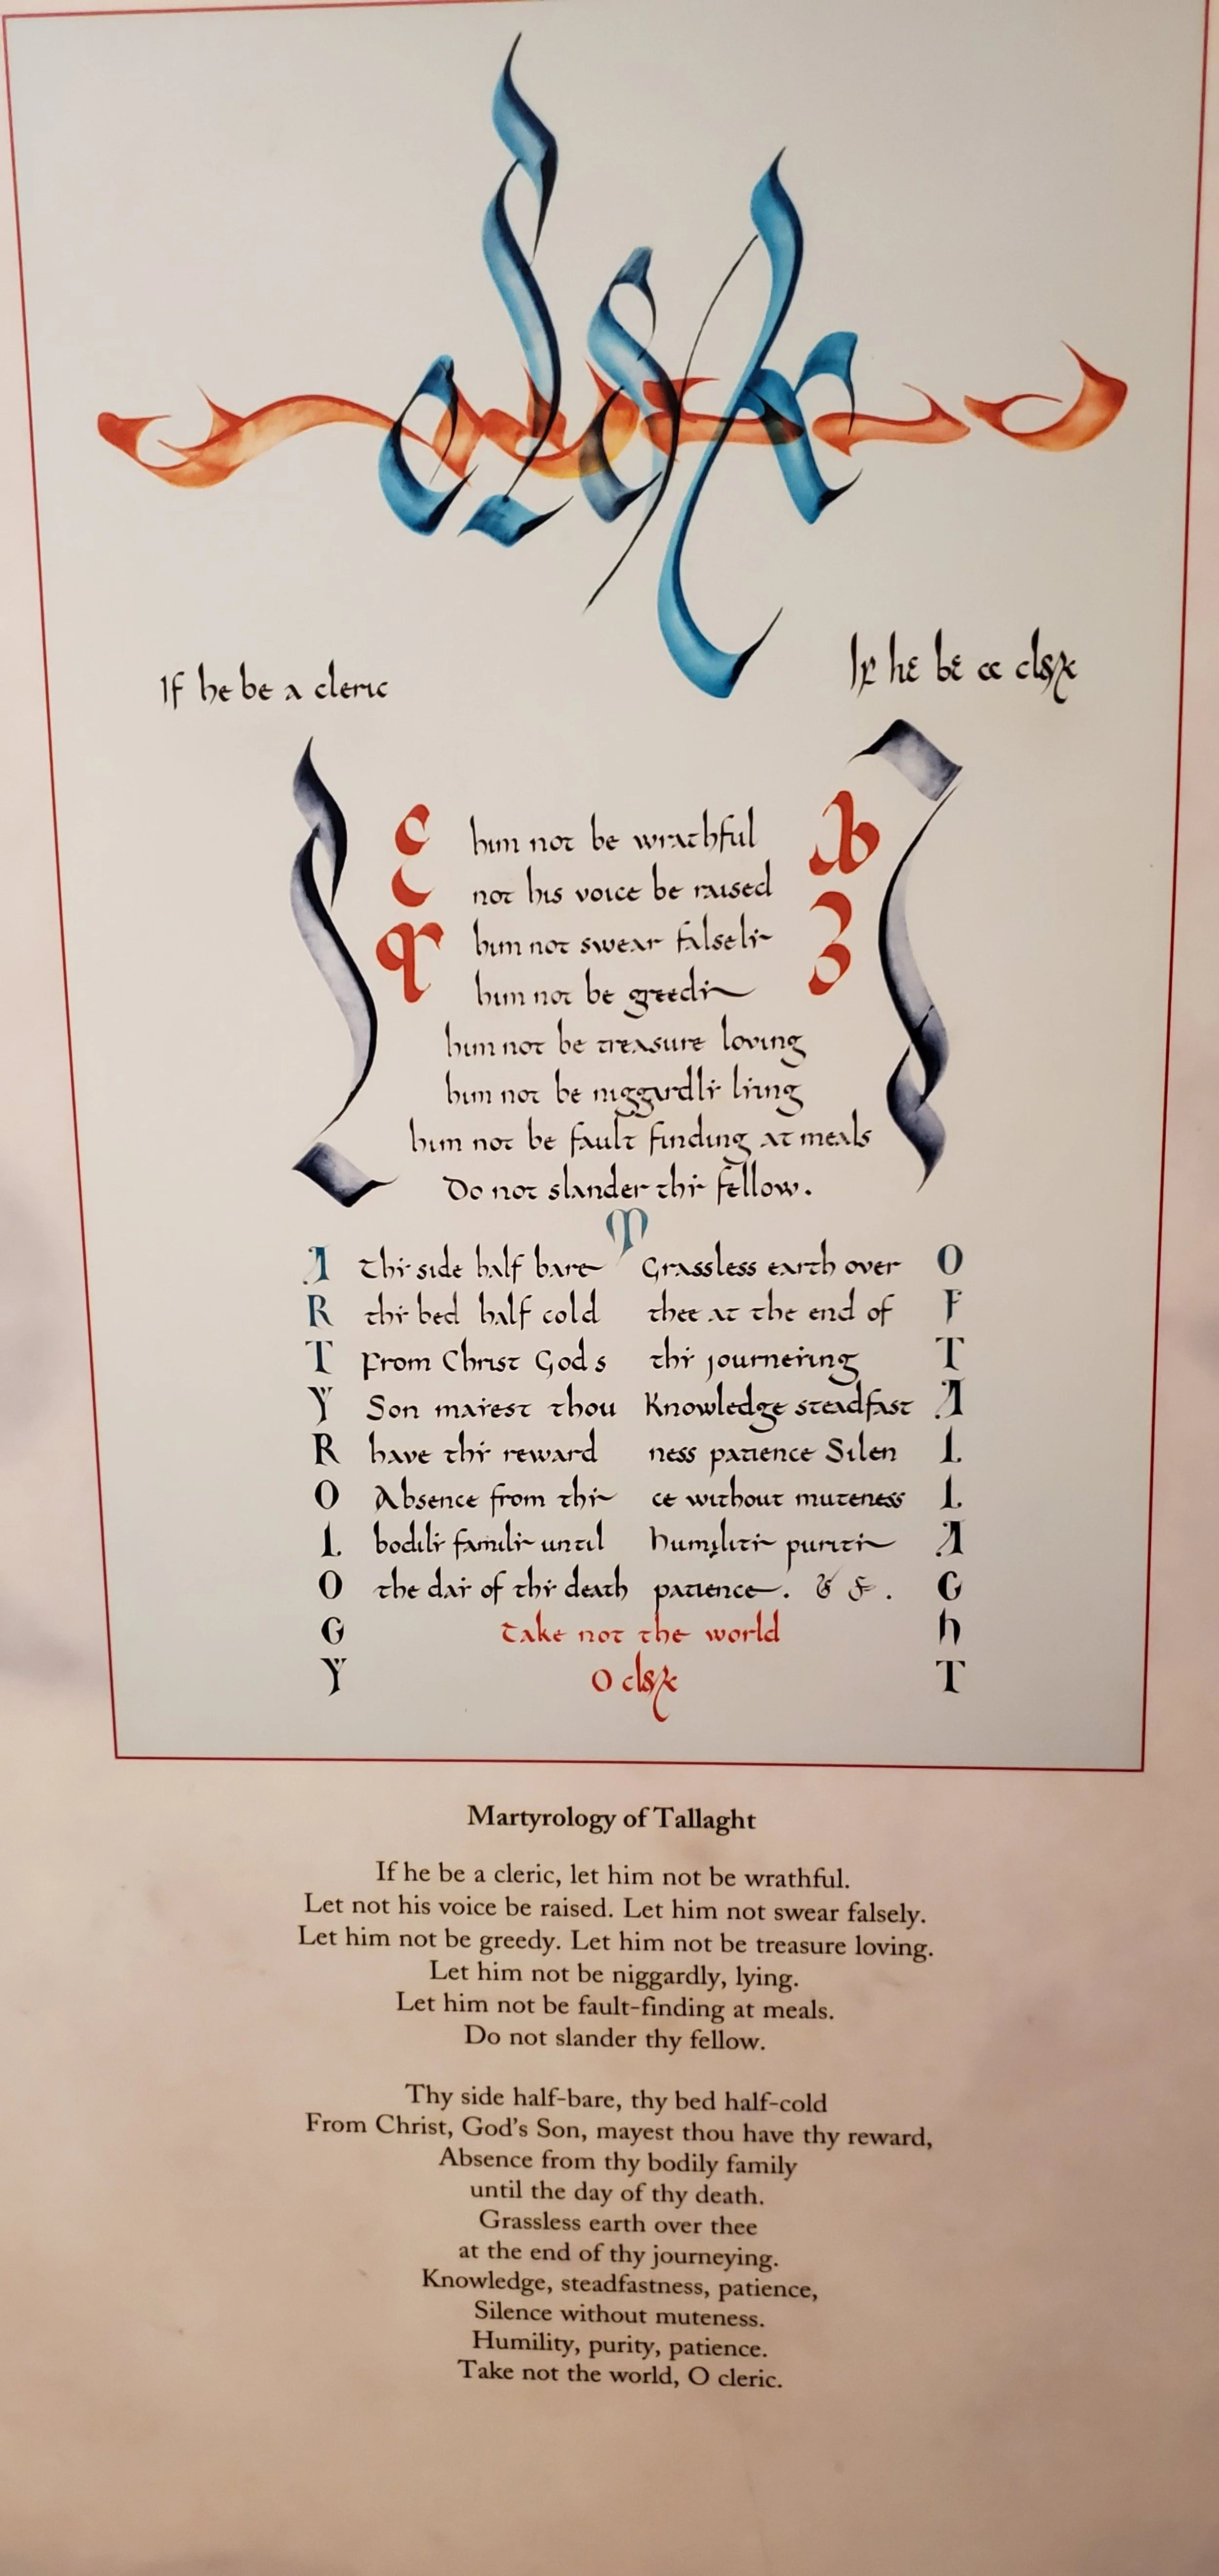 If he be a cleric
If he be a cleric
him not be wrathful
not his voice be raised
him not swear falsely
him not be greedy
him not be treasure loving
him not be niggardly lying
him not be fault finding at meals
Do not slander thy fellow.
M
A Thy side half bare Grassless earth over O
R thy bed half cold thee at the end of F
T From Christ God s thy journeying T
Y Son mayest thou Knowledge steadfast A
R have thy reward ness patience Silen L
O Absence from thy ce without muteness L
L bodily family until humility purity A
O the day of thy death patience. & &. G
G Take not the world h
Y O cleric T
Martyrology of Tallaght
If he be a cleric, let him not be wrathful.
Let not his voice be raised. Let him not swear falsely.
Let him not be greedy. Let him not be treasure loving.
Let him not be niggardly, lying.
Let him not be fault-finding at meals.
Do not slander thy fellow.
Thy side half-bare, thy bed half-cold
From Christ, God's Son, mayest thou have thy reward,
Absence from thy bodily family
until the day of thy death.
Grassless earth over thee
at the end of thy journeying.
Knowledge, steadfastness, patience,
Silence without muteness.
Humility, purity, patience.
Take not the world, O cleric.